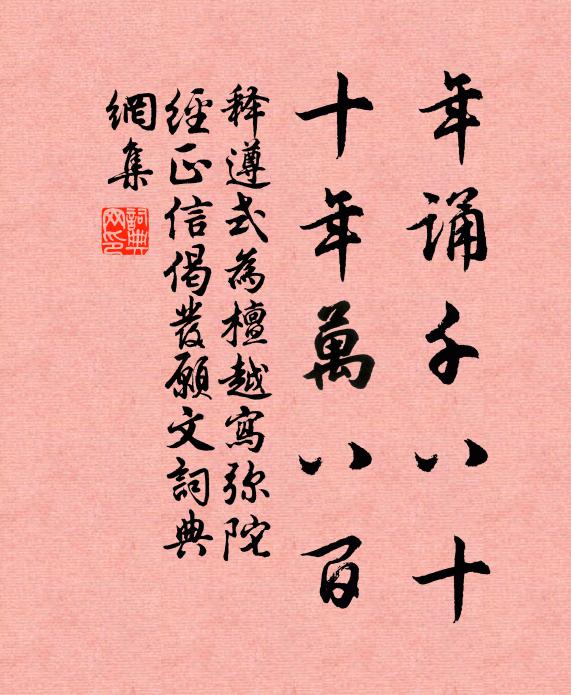 年誦千八十
十年萬八百
释遵式為檀越寫弥陀
經正信偈發願文詞典
網集
詞典网印